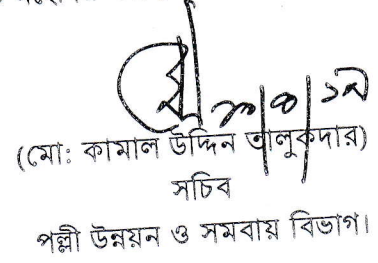 (মো: কামাল উদ্দিন তালুকদার)
সচিব
পল্লী উন্নয়ন ও সমবায় বিভাগ।